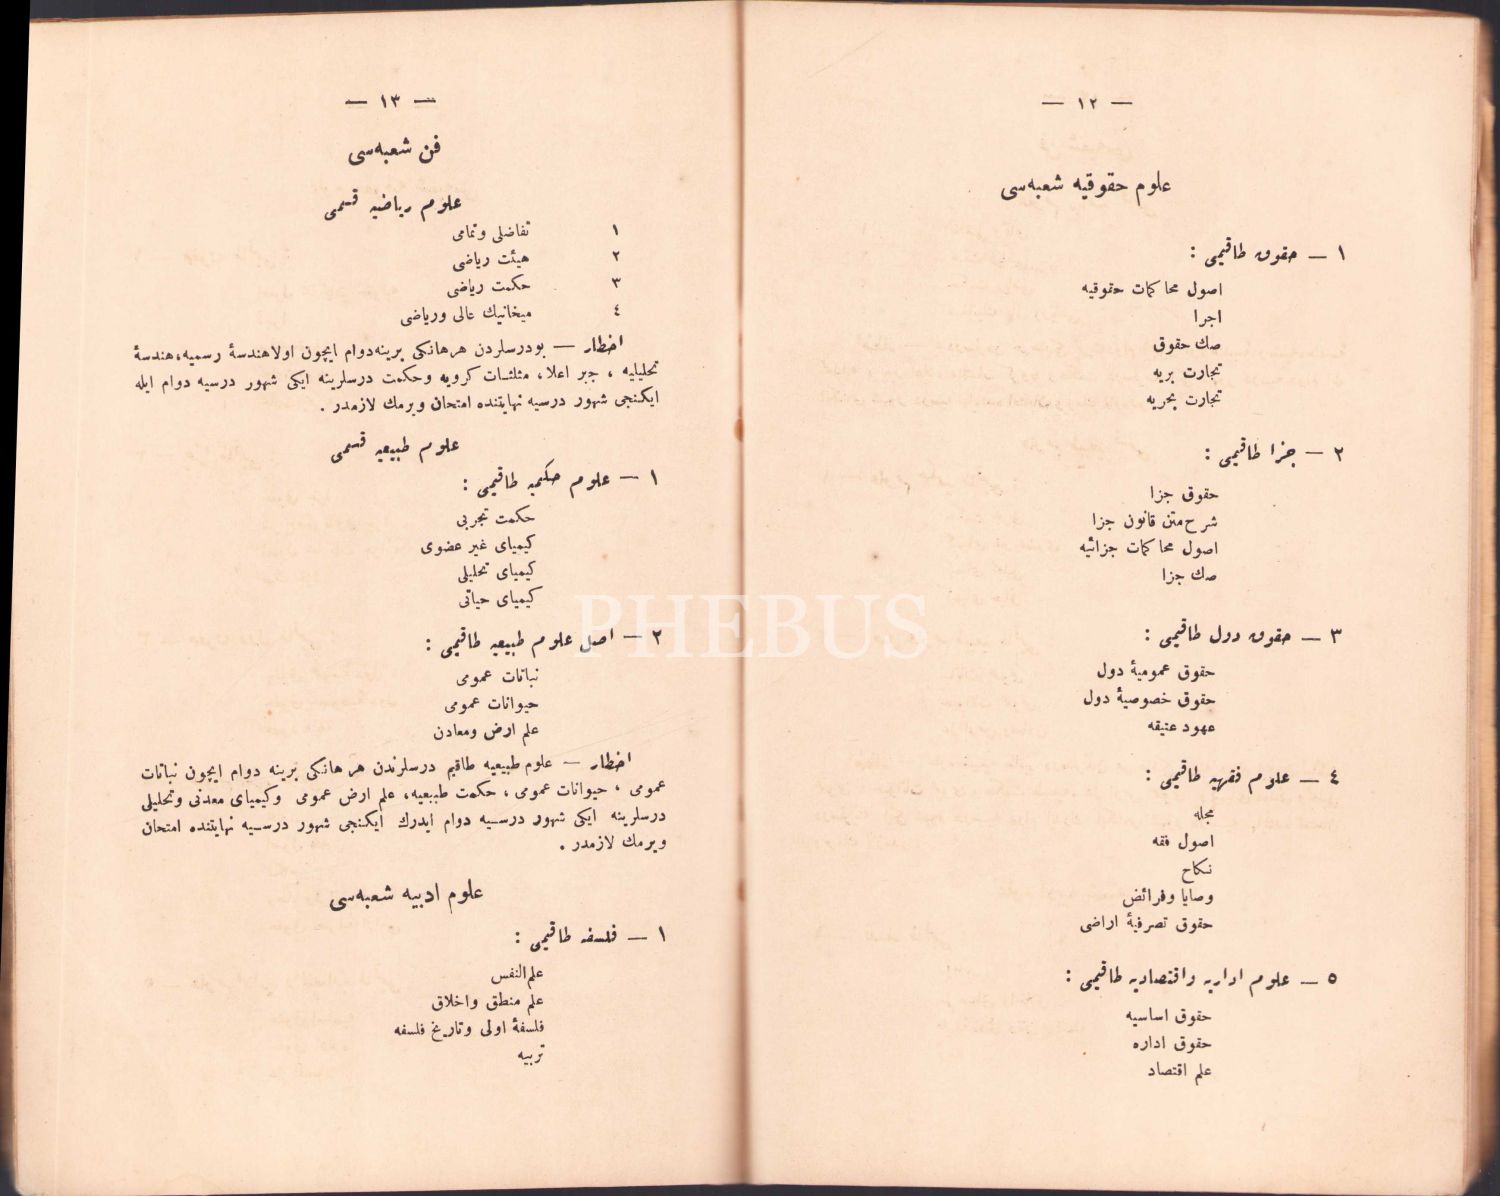 — ١٢ —
علوم حقوقیه شعبه‌سی
١ — حقوق طاقیمی :
اصول محاکمات حقوقیه
اجرا
صك حقوق
تجارت بریه
تجارت بحریه
٢ — جزا طاقیمی :
حقوق جزا
شرح متن قانون جزا
اصول محاکمات جزائیه
صك جزا
٣ — حقوق دول طاقیمی :
حقوق عمومیهٔ دول
حقوق خصوصیهٔ دول
عهود عتیقه
٤ — علوم فقهیه طاقیمی :
مجله
اصول فقه
نکاح
وصایا وفرائض
حقوق تصرفیهٔ اراضی
٥ — علوم اداریه واقتصادیه طاقیمی :
حقوق اساسیه
حقوق اداره
علم اقتصاد
— ١٣ —
فن شعبه‌سی
علوم ریاضیه قسمی
١ تفاضلی وتمامی
٢ هیئت ریاضی
٣ حکمت ریاضی
٤ میخانیك عالی وریاضی
اخطار — بودرسلردن هرهانکی برینه‌دوام ایچون اولا هندسهٔ رسمیه، هندسهٔ
تحلیلیه ، جبر اعلا، مثلثات کرویه وحکمت درسلرینه ایکی شهور درسیه دوام ایله
ایکنجی شهور درسیه نهایتنده امتحان ویرمك لازمدر .
علوم طبیعیه قسمی
١ — علوم حکمیه طاقیمی :
حکمت تجربی
کیمیای غیر عضوی
کیمیای تحلیلی
کیمیای حیاتی
٢ — اصل علوم طبیعیه طاقیمی :
نباتات عمومی
حیوانات عمومی
علم ارض ومعادن
اخطار — علوم طبیعیه طاقیم درسلرندن هرهانکی برینه دوام ایچون نباتات
عمومی ، حیوانات عمومی ، حکمت طبیعیه، علم ارض عمومی وکیمیای معدنی وتحلیلی
درسلرینه ایکی شهور درسیه دوام ایدرك ایکنجی شهور درسیه نهایتنده امتحان
ویرمك لازمدر .
علوم ادبیه شعبه‌سی
١ — فلسفه طاقیمی :
علم‌النفس
علم منطق واخلاق
فلسفهٔ اولی وتاریخ فلسفه
تربیه
PHEBUS